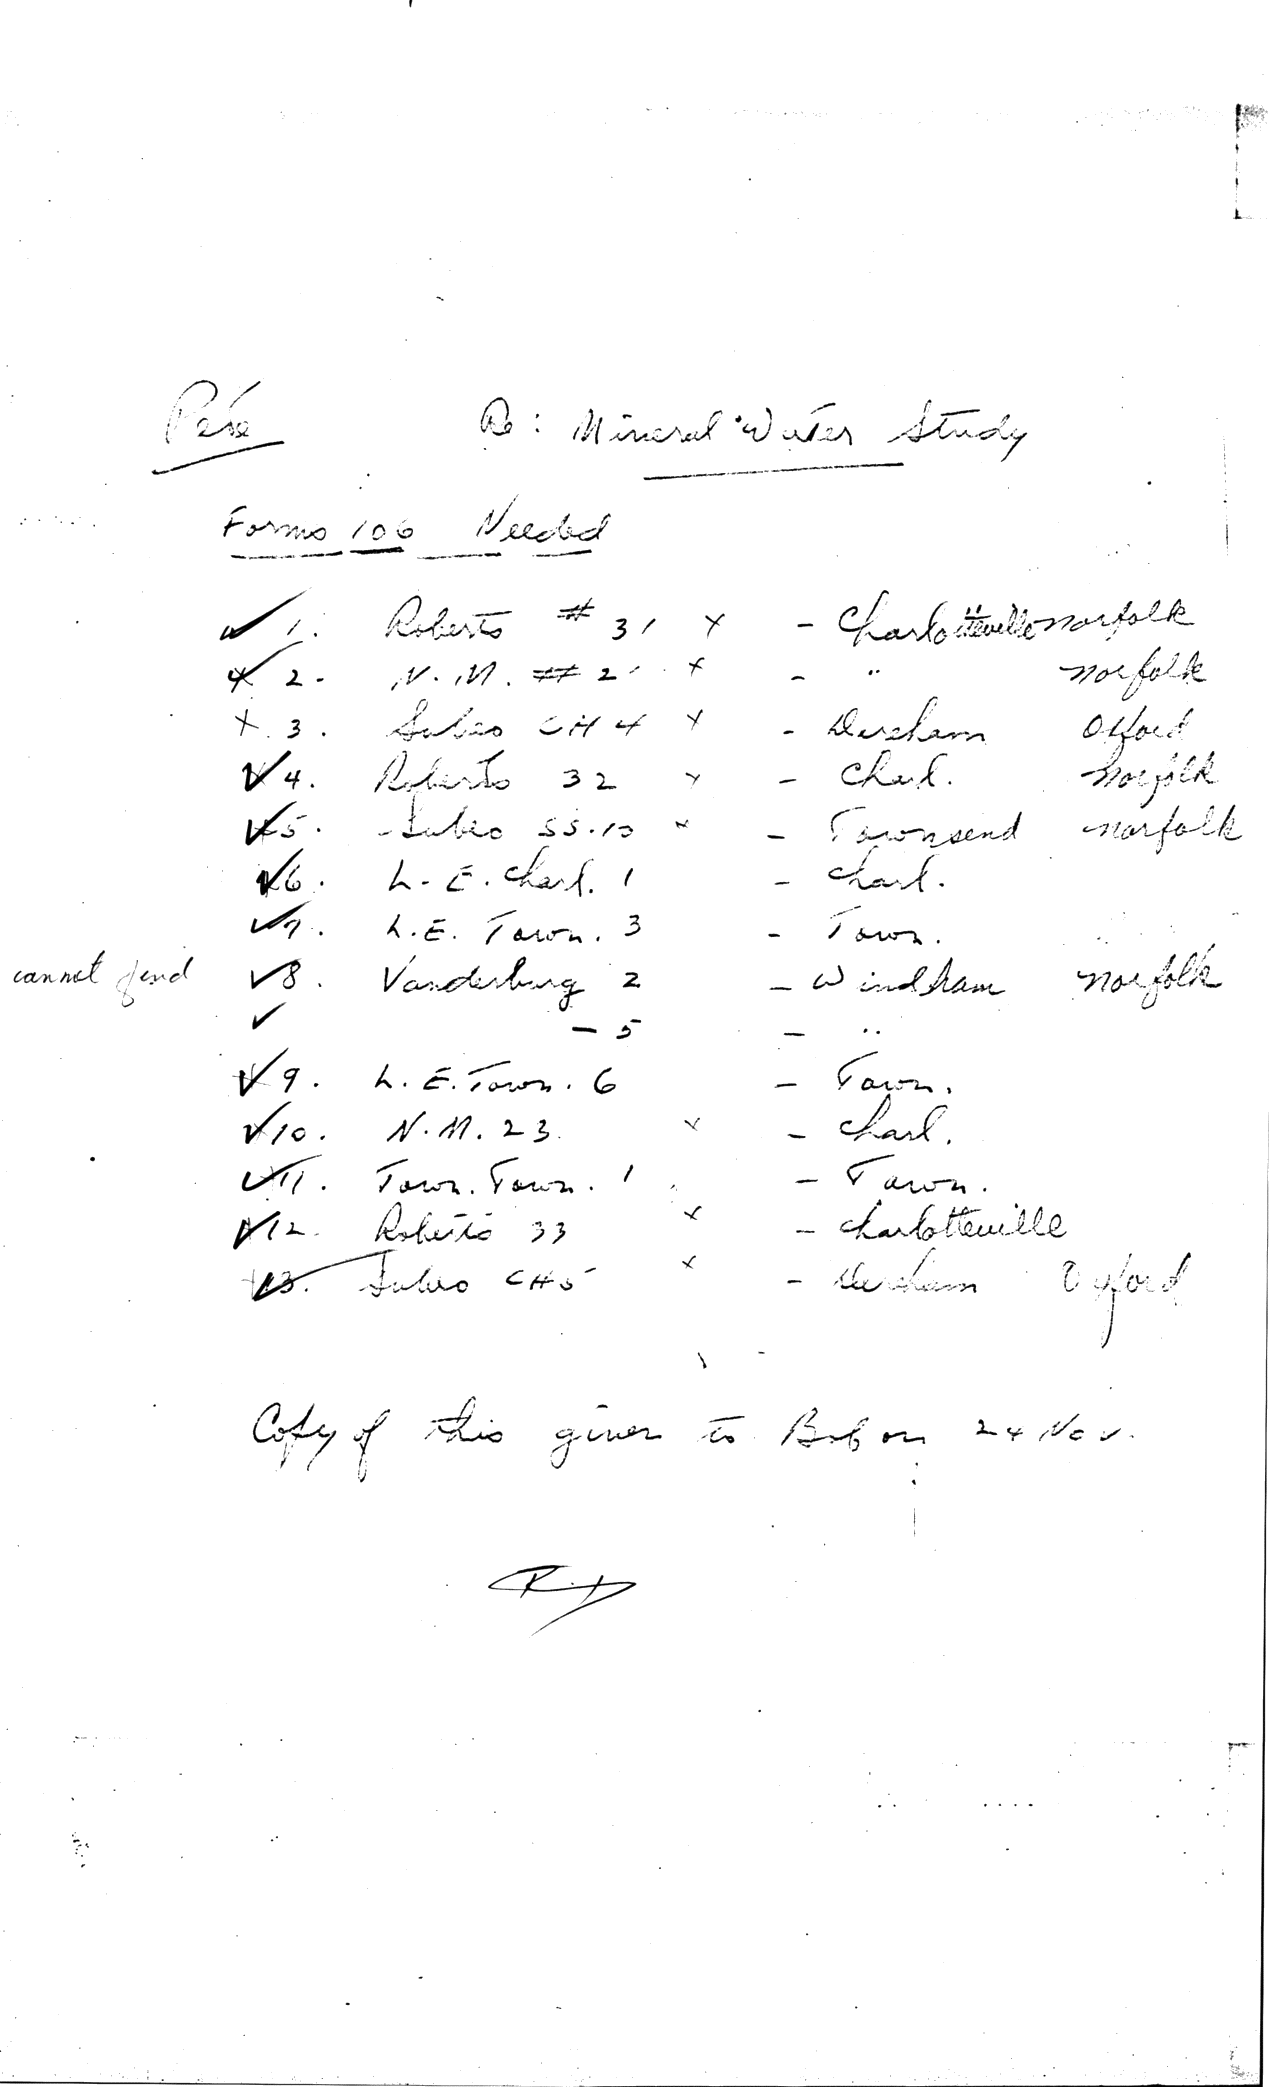 Pete Re: Mineral Water Study
Forms 106 Needed
✓ 1. Roberts # 31 x - Charlotteville Norfolk
x ✓ 2. N.M. # 2 x - " Norfolk
x 3. CH 4 x - Dereham Oxford
✓ 4. Roberts 32 x - Charl. Norfolk
✓ 5. SS.10 x - Townsend Norfolk
✓ 6. L.E. Charl. 1 - Charl.
✓ 7. L.E. Town. 3 - Town.
cannot find ✓ 8. Vanderburg 2 - Windham Norfolk
✓ - 5 - "
✓ 9. L.E. Town. 6 - Town.
✓ 10. N.M. 23 x - Charl.
✓ 11. Town. Town. 1 - Town.
✓ 12. Roberts 33 x - Charlotteville
✓ 13. CH5 x - Dereham Oxford
Copy of this given to Bob on 24 Nov.
RD